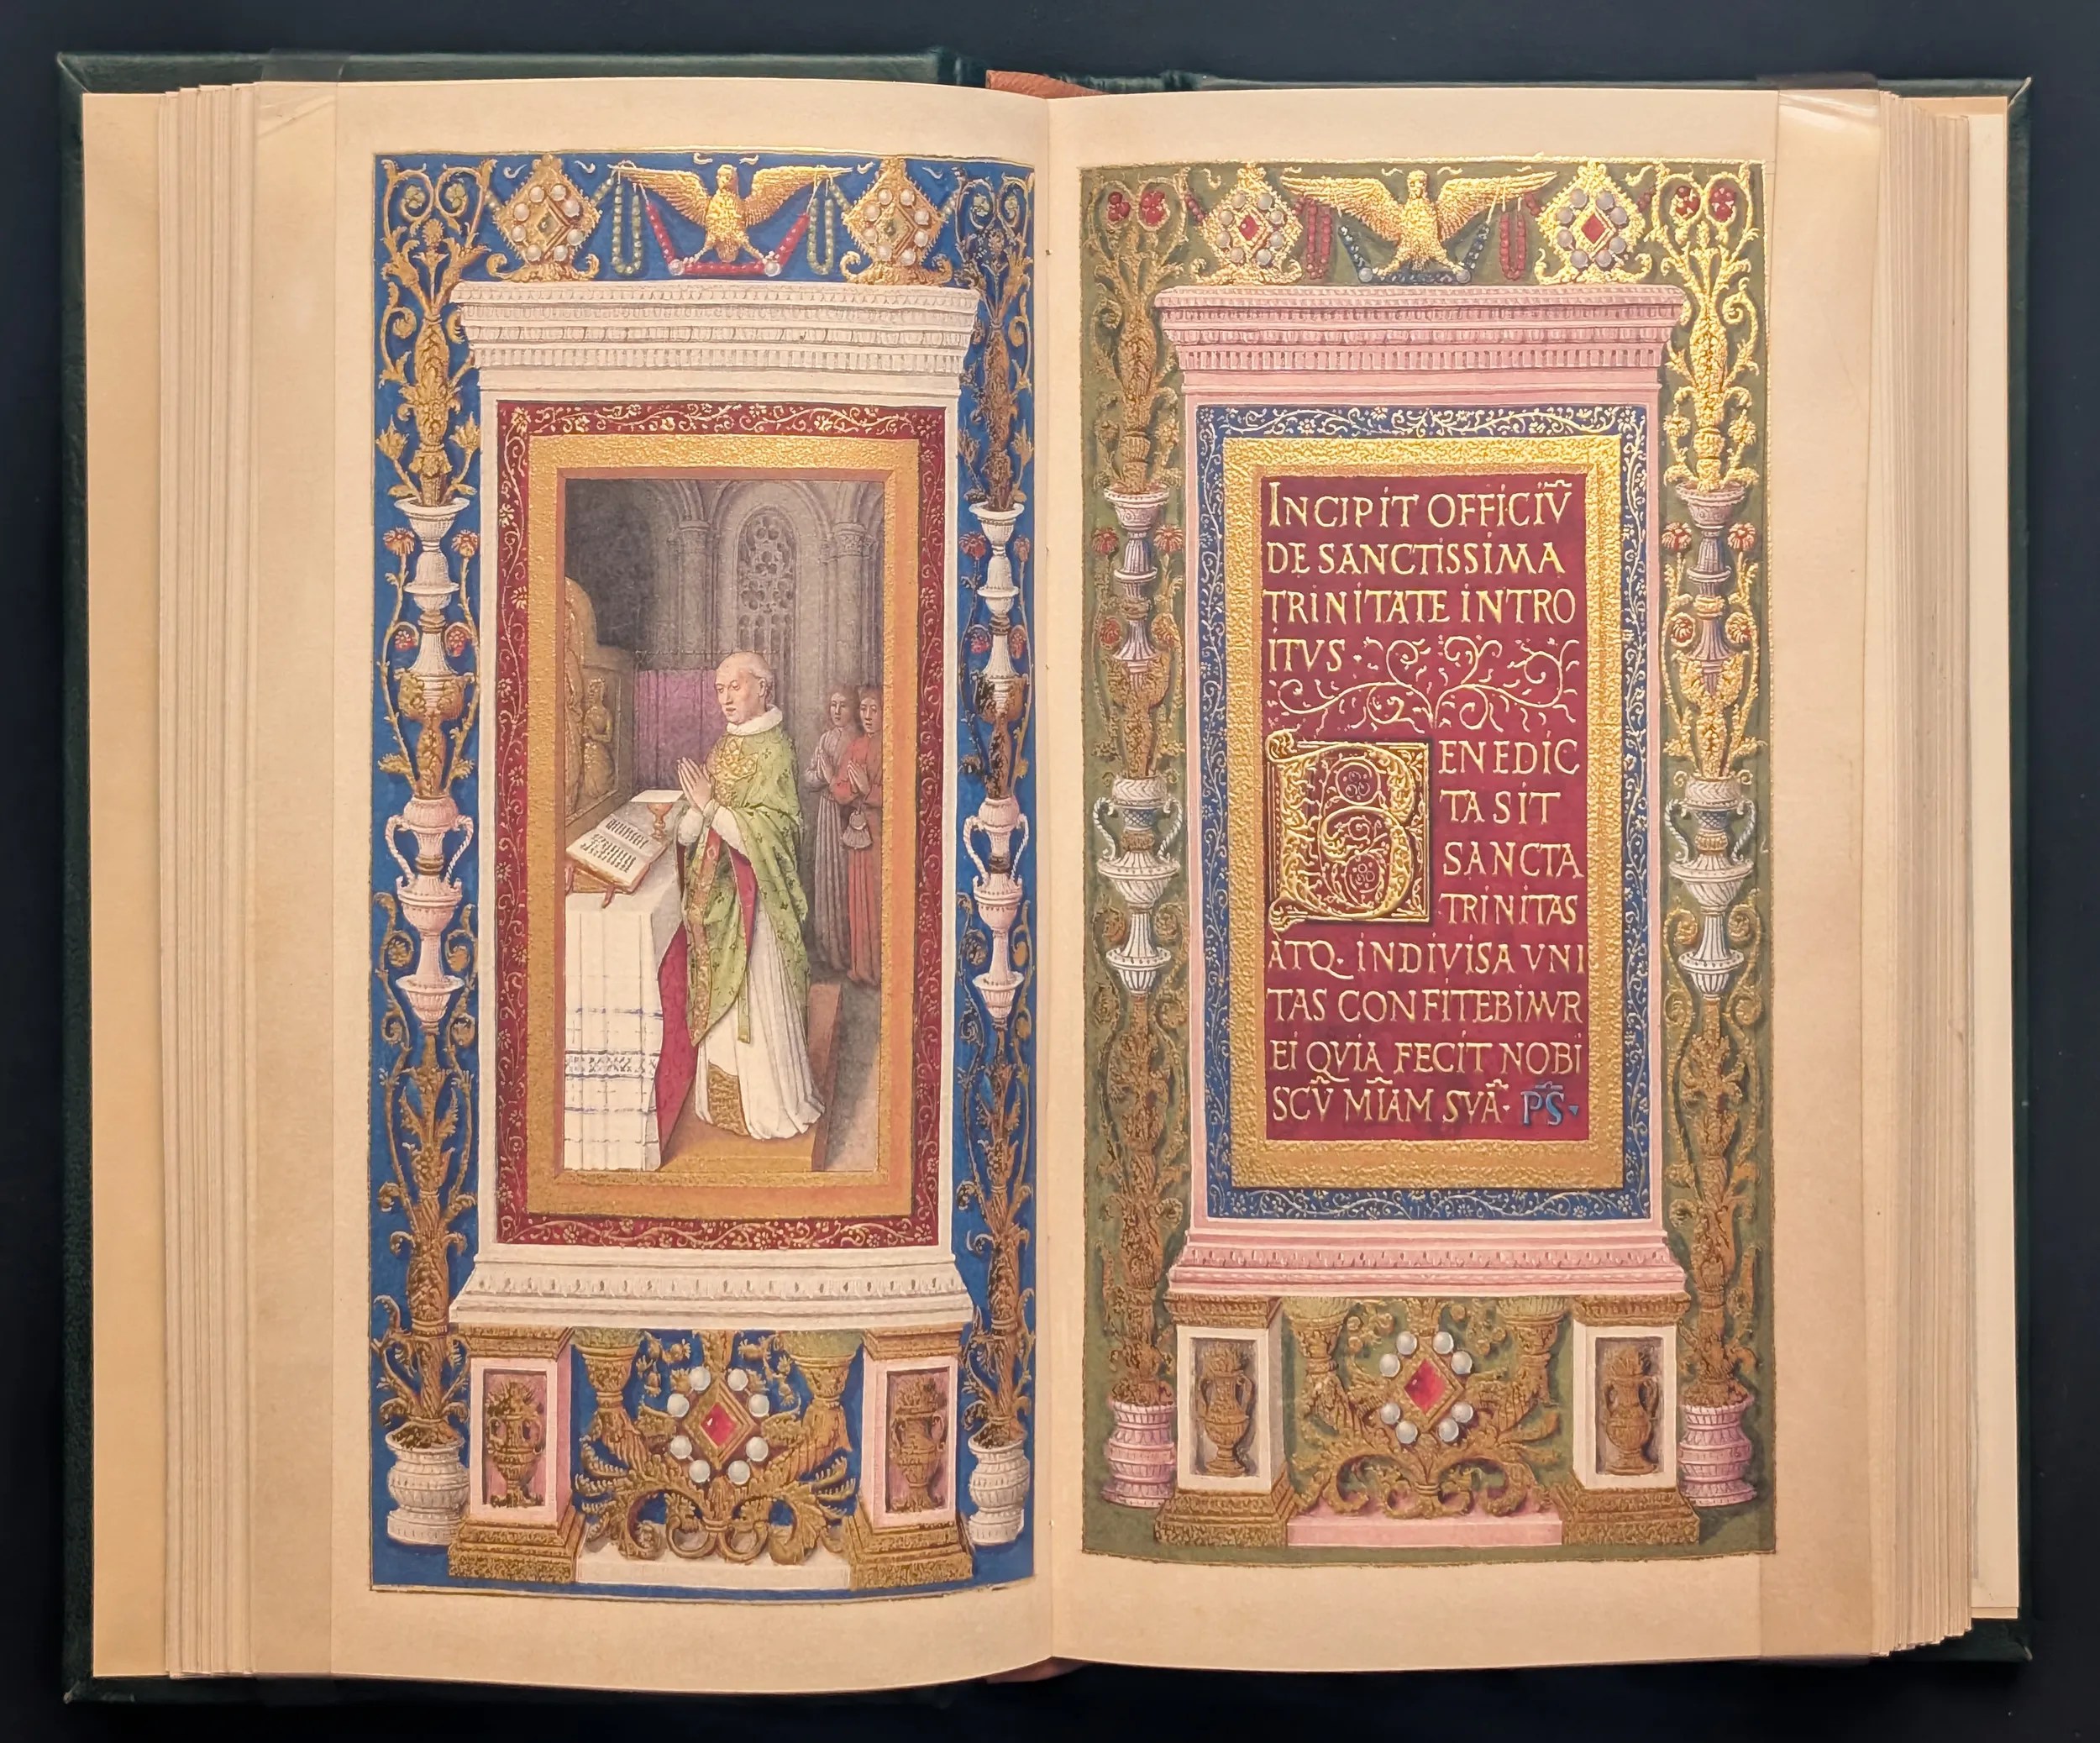 INCIPIT OFFICIṼ
DE SANCTISSIMA
TRINITATE INTRO
ITVS ·
BENEDIC
TA SIT
SANCTA
TRINITAS
ATQ· INDIVISA VNI
TAS CONFITEBIMVR
EI QVIA FECIT NOBI
SCṼ MĨAM SVÃ· PS̃·